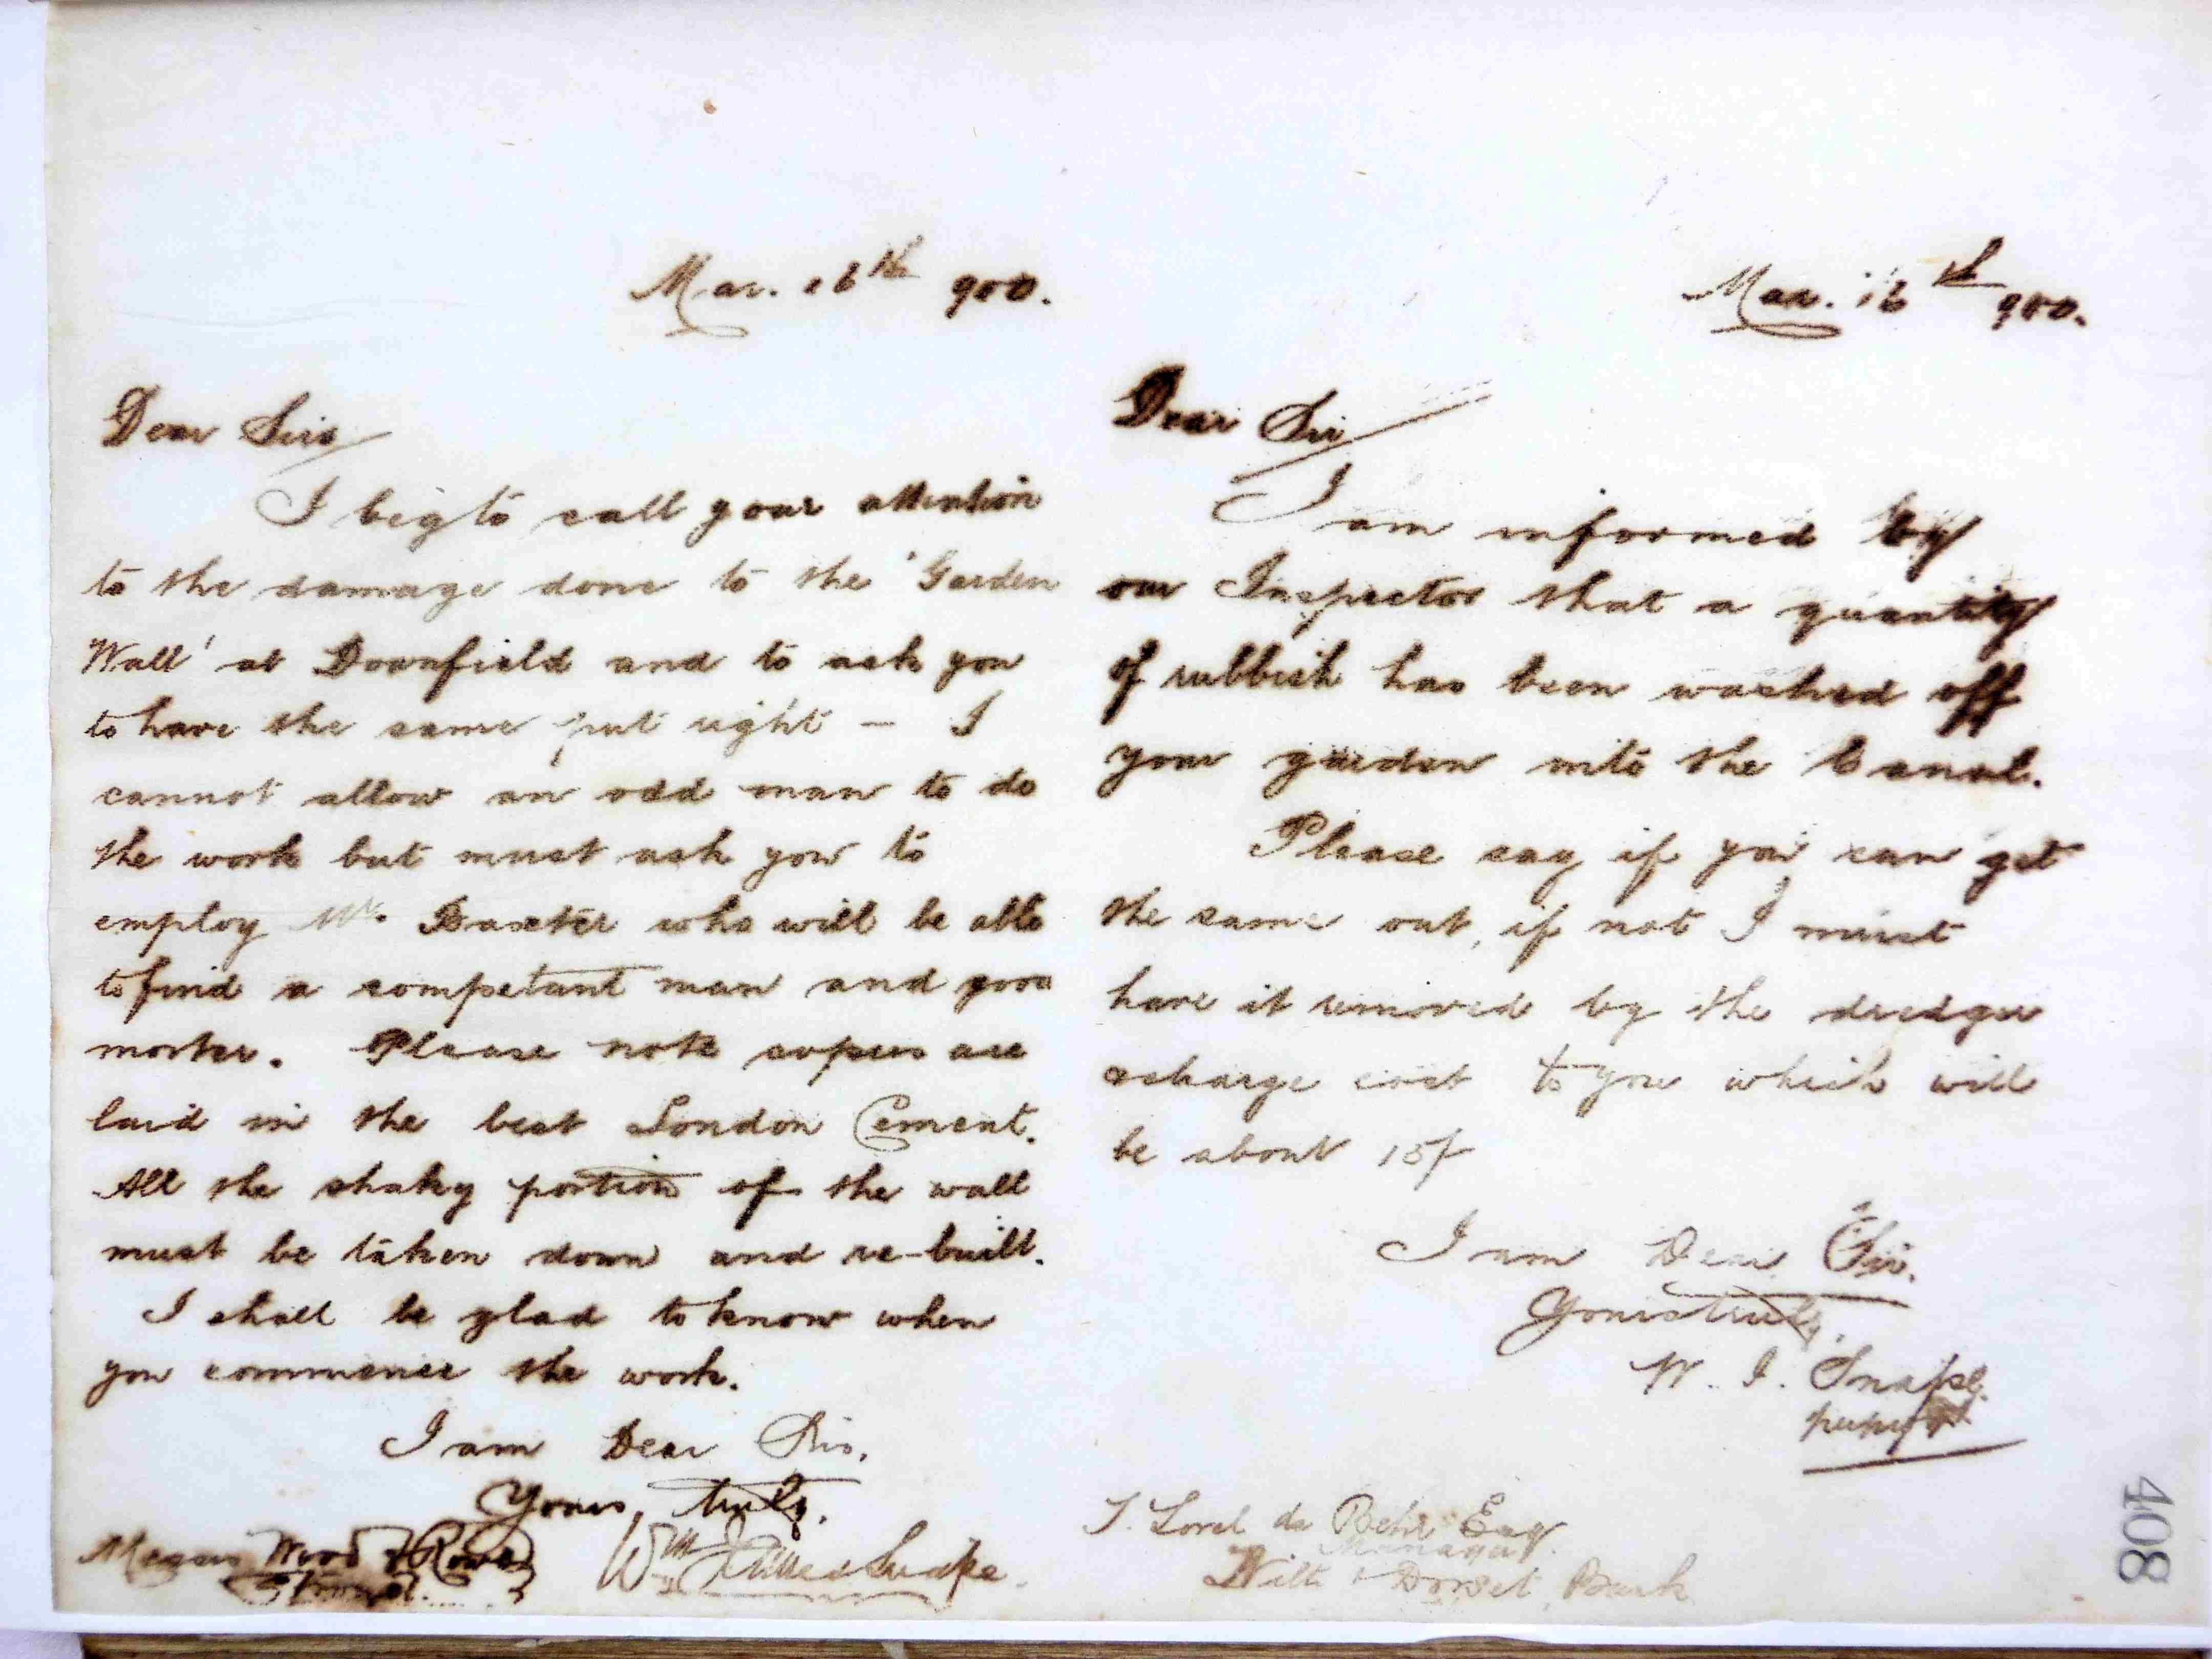 Mar. 16th 900.
Dear Sirs
I beg to call your attention
to the damage done to the 'Garden
Wall' at Downfield and to ask you
to have the same put right - I
cannot allow an odd man to do
the work but must ask you to
employ Mr. Baxter who will be able
to find a competant man and good
morter. Please note copers are
laid in the best London Cement.
All the shaky portion of the wall
must be taken down and re-built.
I shall be glad to know when
you commence the work.
I am Dear Sirs,
Yours truly,
Wm James Snape.
Messrs Wood & Rowe
Stroud.
Mar. 16th 900.
Dear Sir
I am informed by
our Inspector that a quantity
of rubbish has been washed off
your garden into the Canal.
Please say if you can get
the same out, if not I must
have it removed by the dredger
& charge cost to you which will
be about 15/-
I am Dear Sir,
Yours truly,
W. J. Snape.
de Esqr.
Manager.
Wilts & Dorset Bank
408